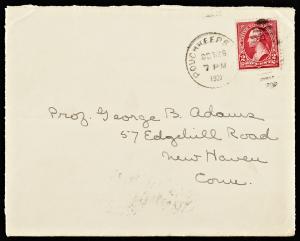 POUGHKEEPS
7 PM
Prof. George B. Adams
57 Edgehill Road
New Haven
Conn.